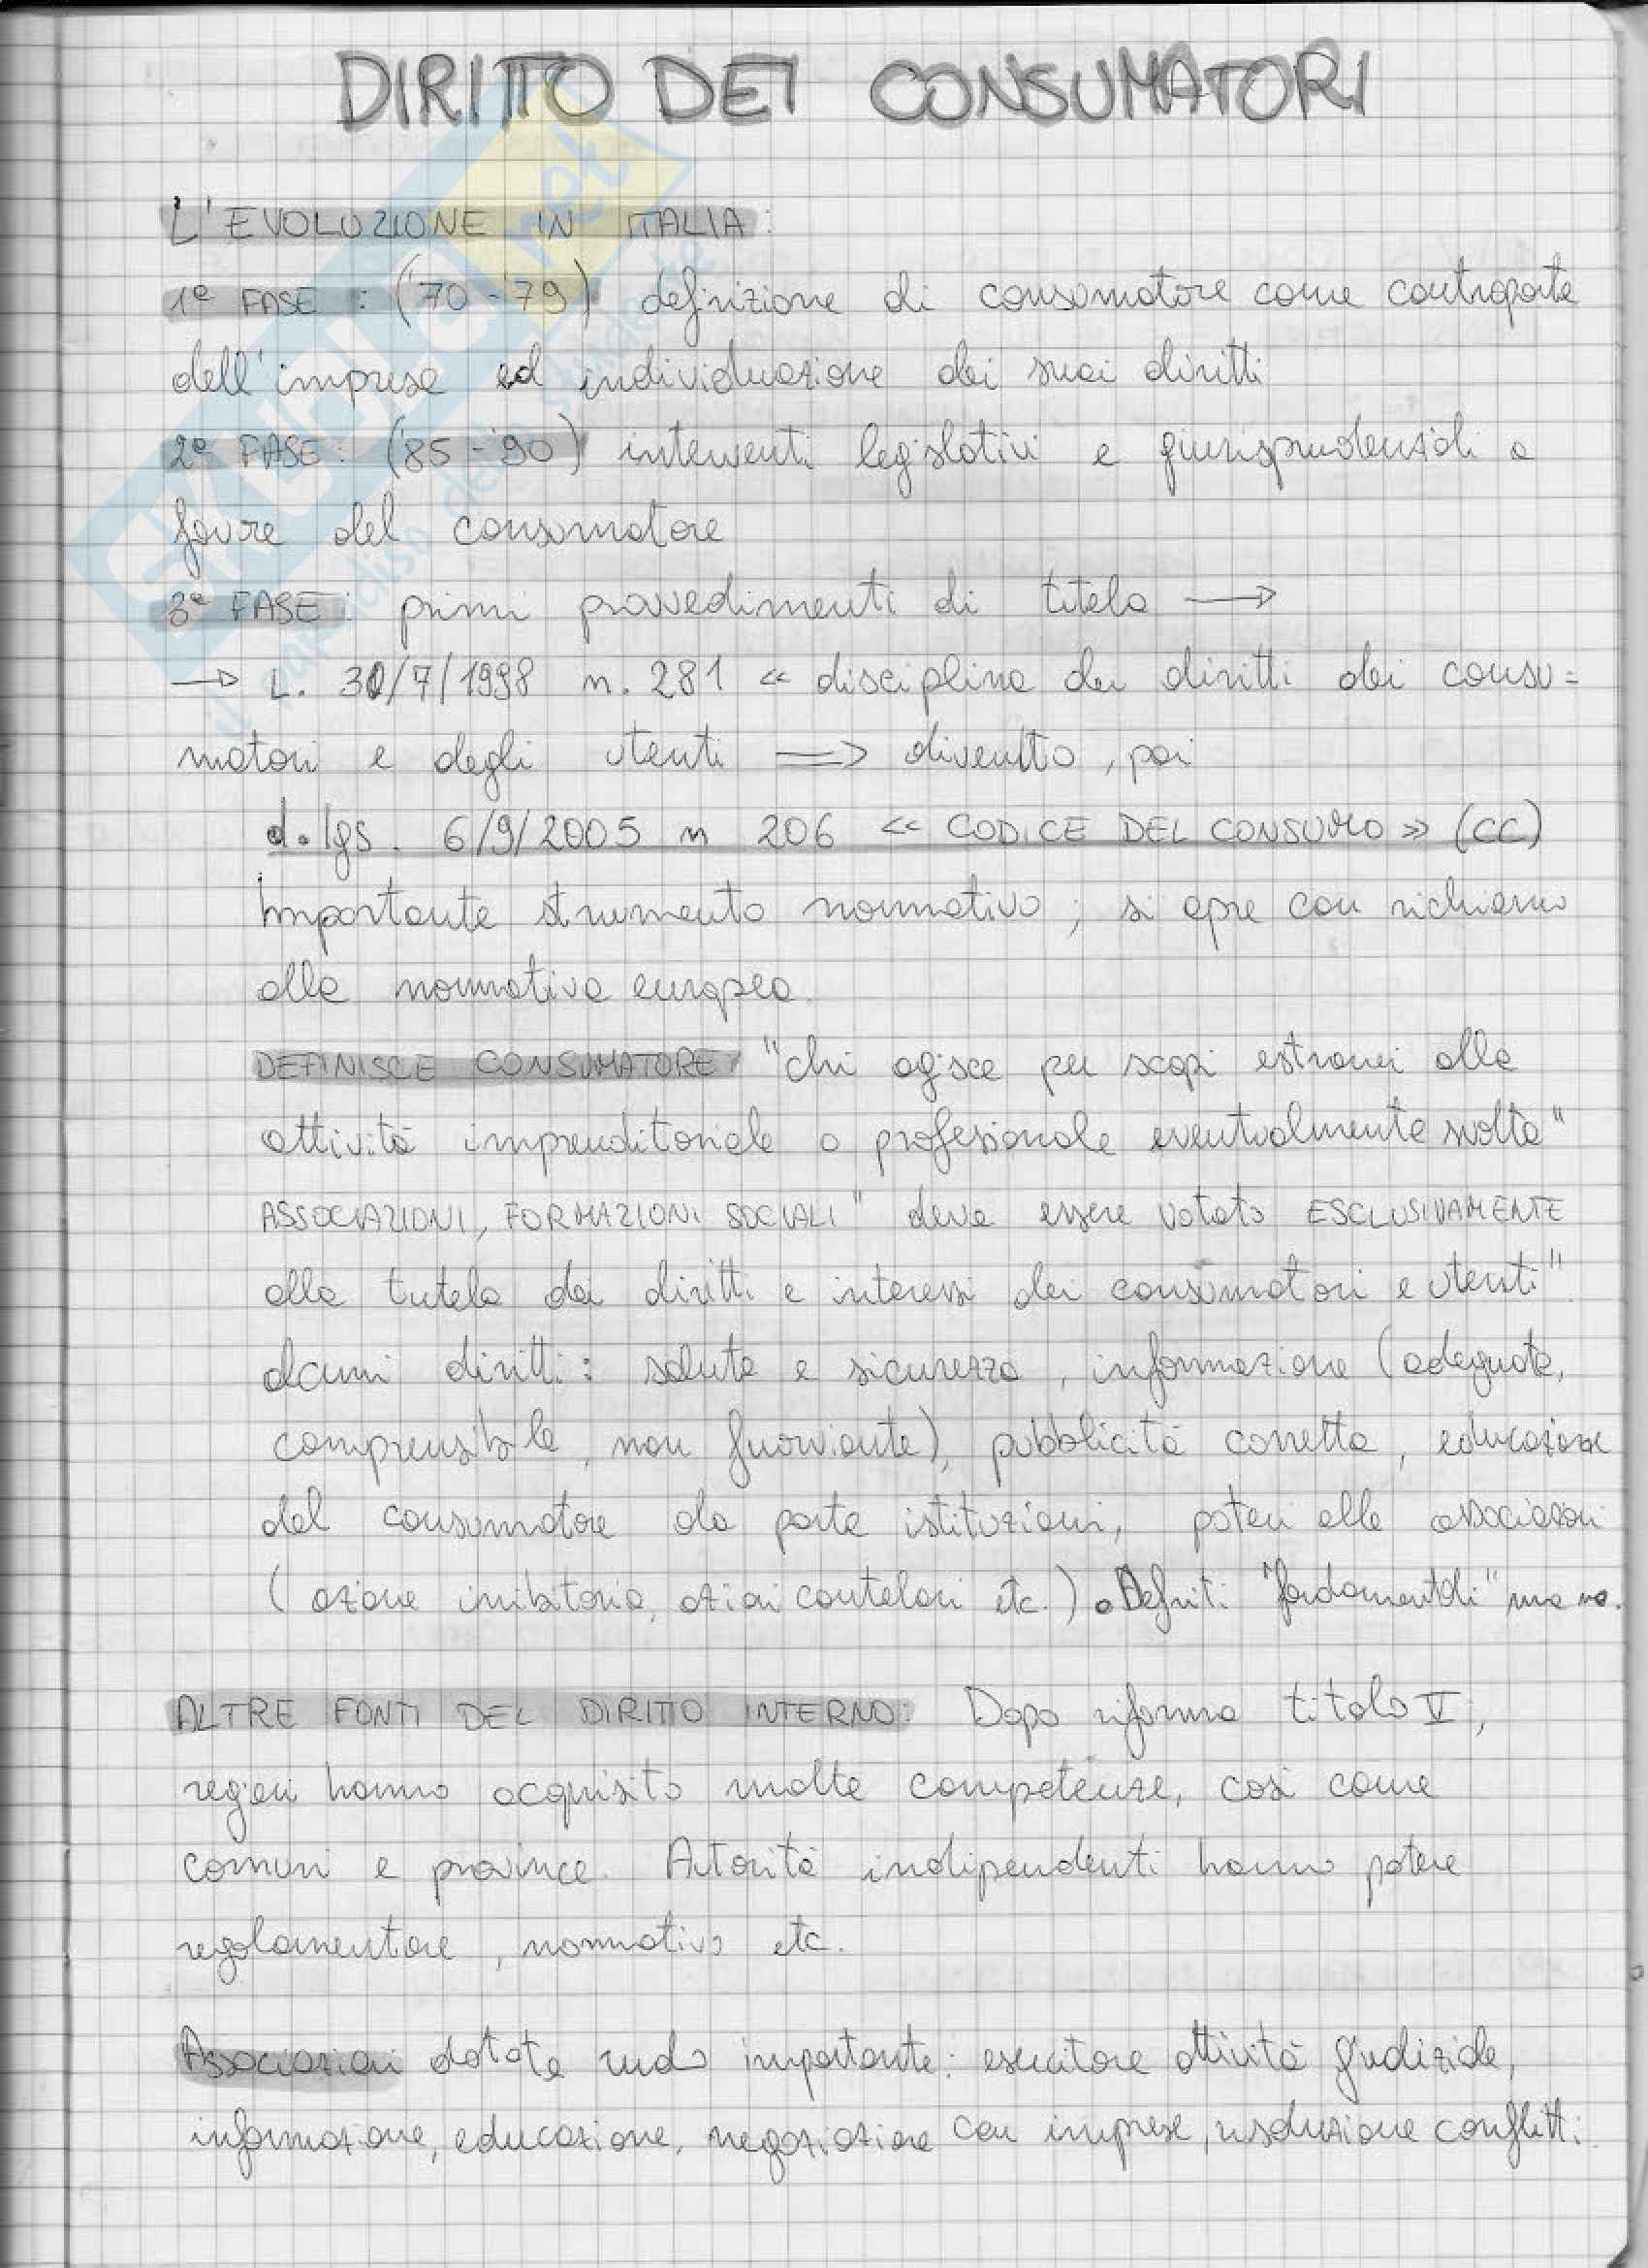 DIRITTO DEI CONSUMATORI
L'EVOLUZIONE IN ITALIA:
1ª FASE : ('70 - '79) definizione di consumatore come controparte
dell'impresa ed individuazione dei suoi diritti
2ª FASE: ('85 - '90) interventi legislativi e giurisprudenziali a
favore del consumatore
3ª FASE: primi provvedimenti di tutela →
→ L. 30/7/1998 n. 281 « disciplina dei diritti dei consu=
matori e degli utenti ⇒ diventto, poi
d.lgs. 6/9/2005 n 206 « CODICE DEL CONSUMO » (CC)
Importante strumento normativo ; si apre con richiamo
alla normativa europea.
DEFINISCE CONSUMATORE "chi agisce per scopi estranei alla
attività imprenditoriale o professionale eventualmente svolta"
ASSOCIAZIONI, FORMAZIONI SOCIALI " deve essere votato ESCLUSIVAMENTE
alla tutela dei diritti e interessi dei consumatori e utenti"
alcuni diritti: salute e sicurezza , informazione (adeguata,
comprensibile, non fuorviante), pubblicità corretta , educazione
del consumatore da parte istituzioni, poteri alle associazioni
( azione inibitoria, azioni cautelari etc.) . Definiti "fondamentali" ma no.
ALTRE FONTI DEL DIRITTO INTERNO: Dopo riforma titolo V,
regioni hanno acquisito molte competenze, così come
comuni e province. Autorità indipendenti hanno potere
regolamentare , normativo etc.
Associazioni dotate ruolo importante: esercitare attività giudiziale,
informazione, educazione, negoziazione con imprese, risoluzione conflitti.
SKUOLA.net
il paradiso dello studente